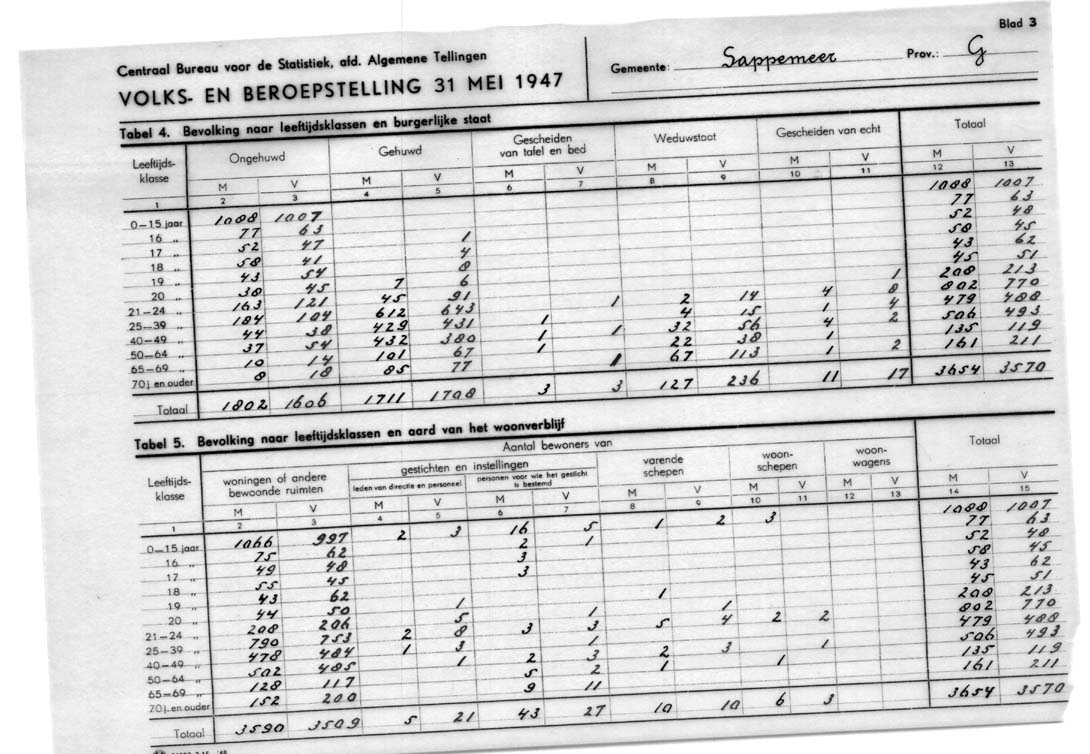 Blad 3
Centraal Bureau voor de Statistiek, afd. Algemene Tellingen
Gemeente: Sappemeer Prov.: G
VOLKS- EN BEROEPSTELLING 31 MEI 1947
Tabel 4. Bevolking naar leeftijdsklassen en burgerlijke staat
Leeftijds-klasse Ongehuwd Gehuwd Gescheiden van tafel en bed Weduwstaat Gescheiden van echt Totaal
M V M V M V M V M V M V
1 2 3 4 5 6 7 8 9 10 11 12 13
0—15 jaar 1088 1007 1088 1007
16 „ 77 63 77 63
17 „ 52 47 1 52 48
18 „ 58 41 4 58 45
19 „ 43 54 8 43 62
20 „ 38 45 7 6 45 51
21—24 „ 163 121 45 91 1 208 213
25—39 „ 184 104 612 643 1 2 14 4 8 802 770
40—49 „ 44 38 429 431 1 4 15 1 4 479 488
50—64 „ 37 54 432 380 1 1 32 56 4 2 506 493
65—69 „ 10 14 101 67 1 22 38 1 135 119
70 j. en ouder 8 18 85 77 1 67 113 1 2 161 211
Totaal 1802 1606 1711 1708 3 3 127 236 11 17 3654 3570
Tabel 5. Bevolking naar leeftijdsklassen en aard van het woonverblijf
Aantal bewoners van
Leeftijds-klasse woningen of andere bewoonde ruimten gestichten en instellingen varende schepen woon-schepen woon-wagens Totaal
leden van directie en personeel personen voor wie het gesticht is bestemd
M V M V M V M V M V M V M V
1 2 3 4 5 6 7 8 9 10 11 12 13 14 15
0—15 jaar 1066 997 2 3 16 5 1 2 3 1088 1007
16 „ 75 62 2 1 77 63
17 „ 49 48 3 52 48
18 „ 55 45 3 58 45
19 „ 43 62 43 62
20 „ 44 50 1 1 45 51
21—24 „ 208 206 5 1 1 208 213
25—39 „ 790 753 2 8 3 3 5 4 2 2 802 770
40—49 „ 478 484 1 3 1 479 488
50—64 „ 502 485 1 2 3 2 3 1 506 493
65—69 „ 128 117 5 2 1 1 135 119
70 j. en ouder 152 200 9 11 161 211
Totaal 3590 3509 5 21 43 27 10 10 6 3 3654 3570